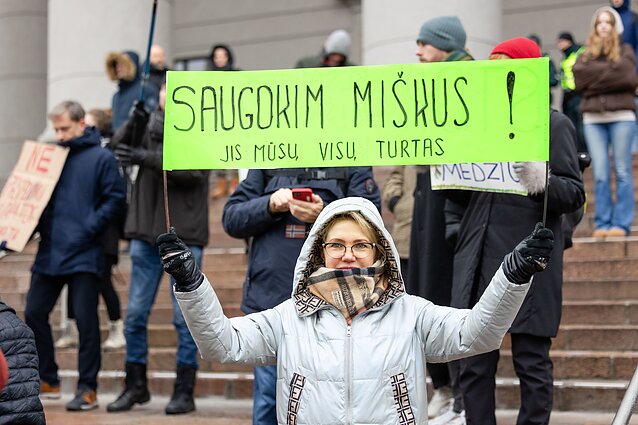 SAUGOKIM MIŠKUS !
JIS MŪSŲ, VISŲ, TURTAS
NE
MEDŽIO